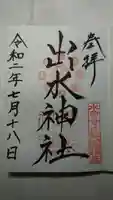 奉拝
出水神社
令和二年七月十八日